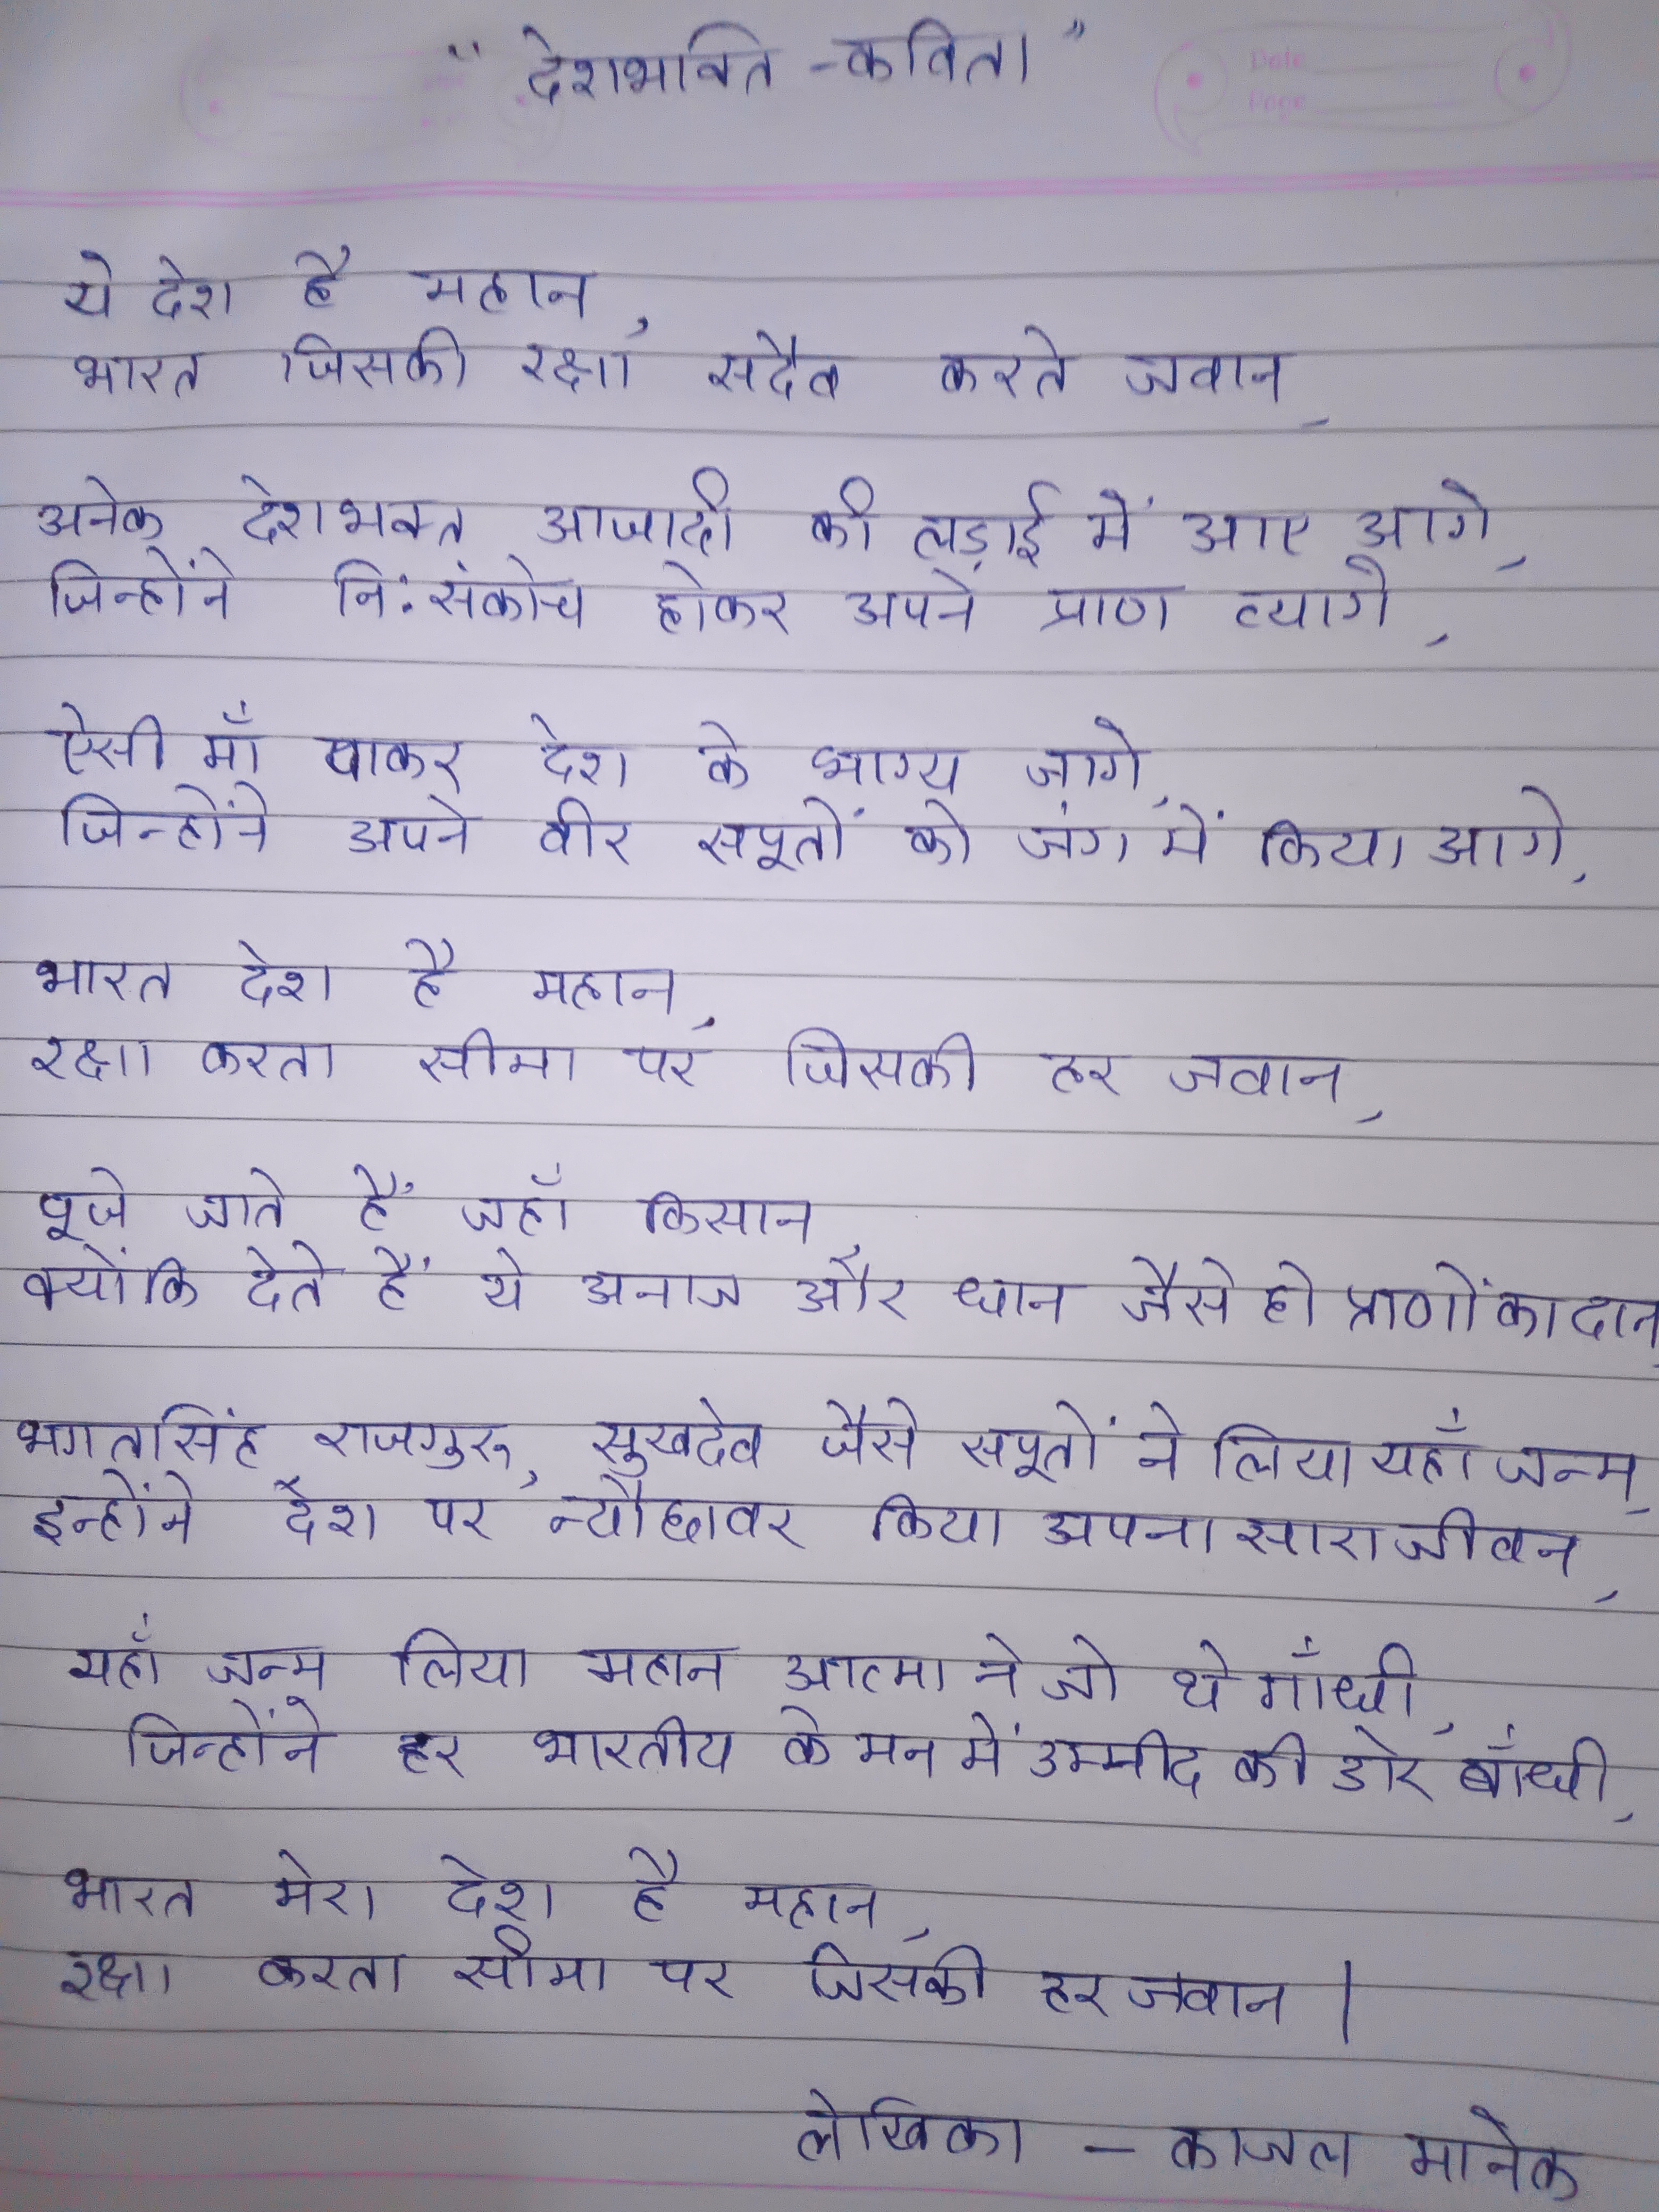 " देशभक्ति - कविता "
Date
Page
ये देश है महान,
भारत जिसकी रक्षा सदैव करते जवान,
अनेक देशभक्त आजादी की लड़ाई में आए आगे,
जिन्होंने नि:संकोच होकर अपने प्राण त्यागे,
ऐसी माँ पाकर देश के भाग्य जागे,
जिन्होंने अपने वीर सपूतों को जंग में किया आगे,
भारत देश है महान,
रक्षा करता सीमा पर जिसकी हर जवान,
पूजे जाते हैं जहाँ किसान,
क्योंकि देते हैं ये अनाज और धान जैसे हो प्राणों का दान,
भगतसिंह राजगुरु, सुखदेव जैसे सपूतों ने लिया यहाँ जन्म,
इन्होंने देश पर न्यौछावर किया अपना सारा जीवन,
यहाँ जन्म लिया महान आत्मा ने जो थे गाँधी,
जिन्होंने हर भारतीय के मन में उम्मीद की डोर बाँधी,
भारत मेरा देश है महान,
रक्षा करता सीमा पर जिसकी हर जवान |
लेखिका - काजल मानेक